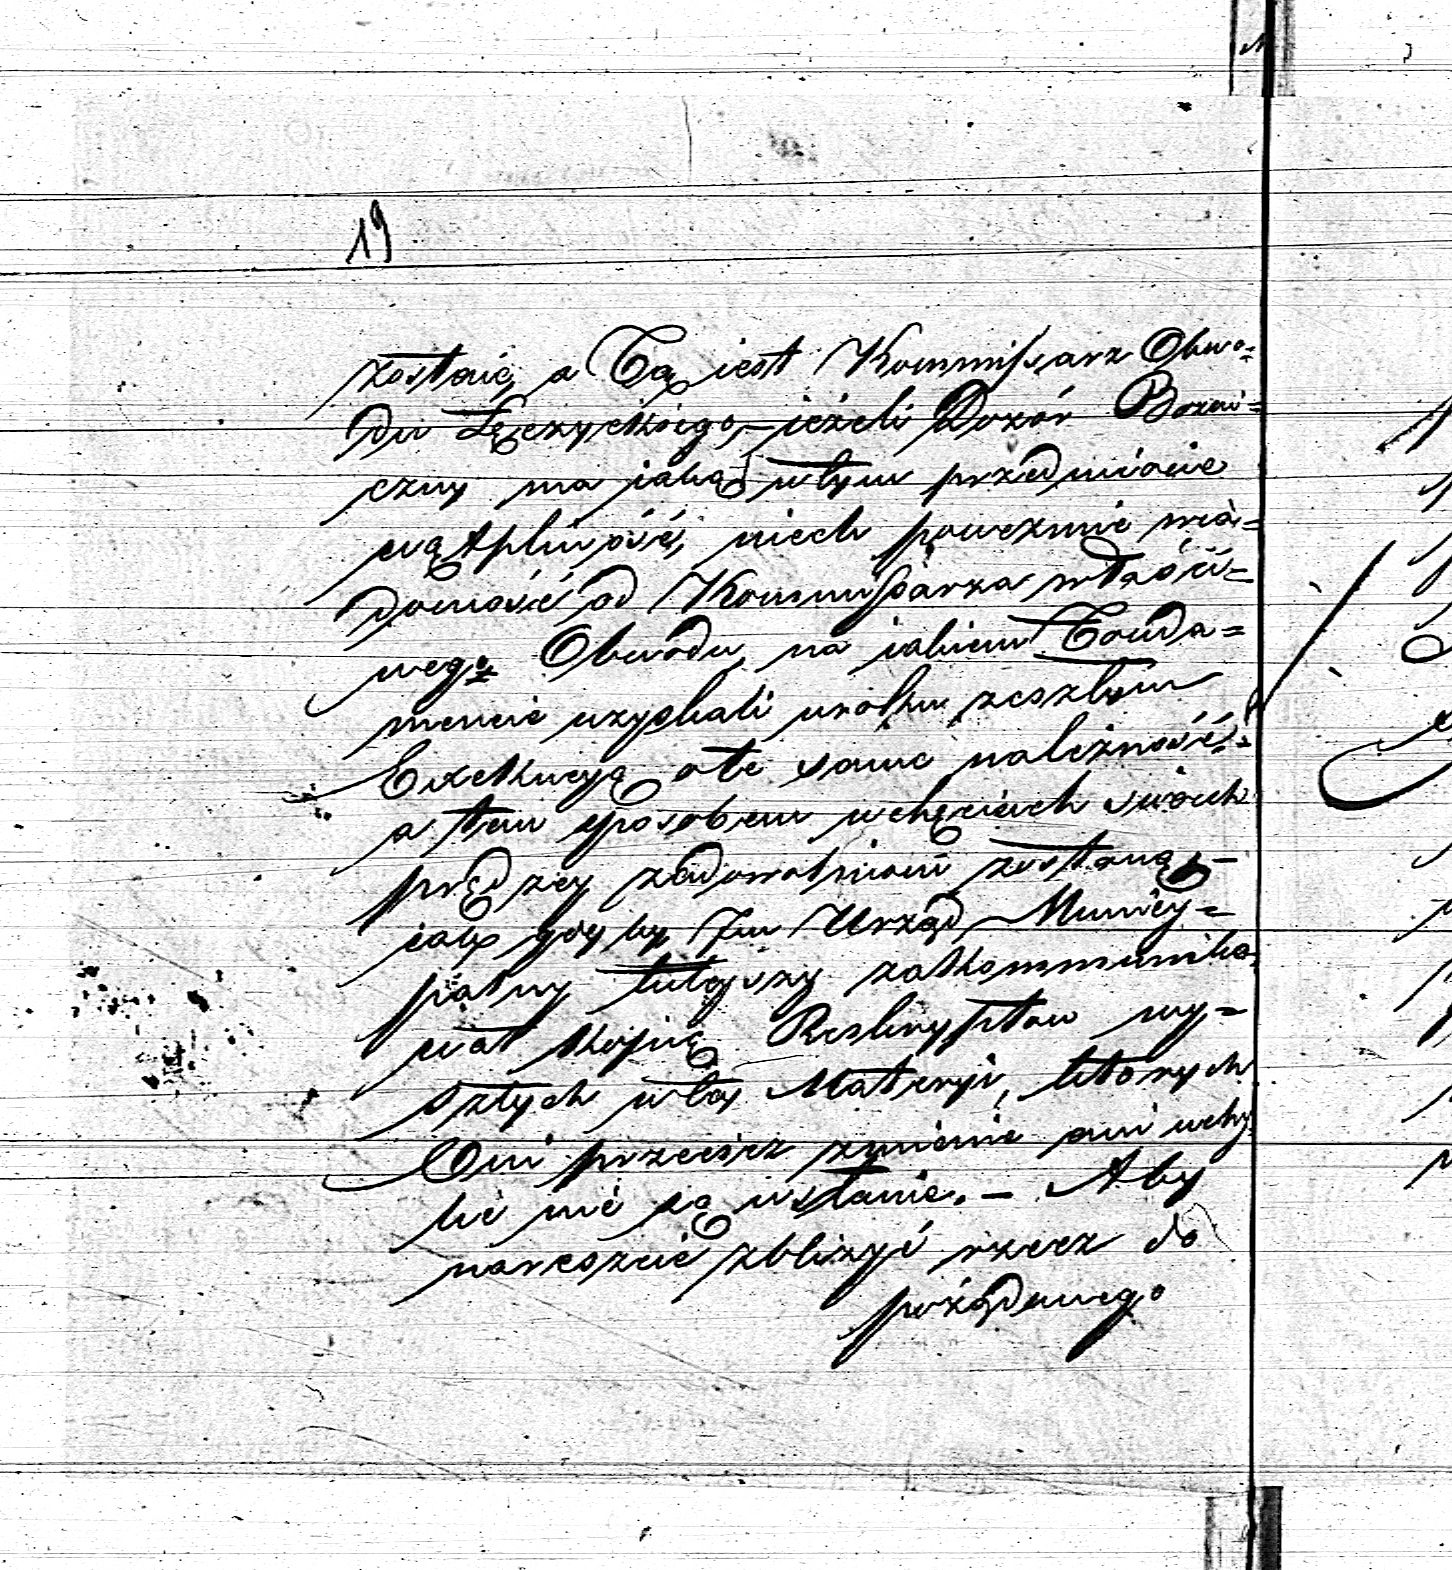 19
zostaie, a Tą iest Kommissarz Obwo=
du Łęczyckiego,— ieżeli Dozór Bożni=
czny ma iaką w tym przedmiocie
wątpliwość, niech poweźmie wia=
domość od Kommissarza właści=
wego Obwodu, na iakiem Fonda=
mencie uzyskali w roku zeszłym
Exekucyą o te same należność,=
a tem sposobem w chęciach swoich
prędzey zadowolnieni zostaną,—
iak gdy by Im Urząd Municy=
palny tutejszy zakommuniko=
wał kopię Reskryptow wy=
szłych w tey Materyi, których
Oni przecież zmienić ani uchy=
lić nie są w stanie.— Aby
nareszcie zbliżyć rzecz do
pożądanego